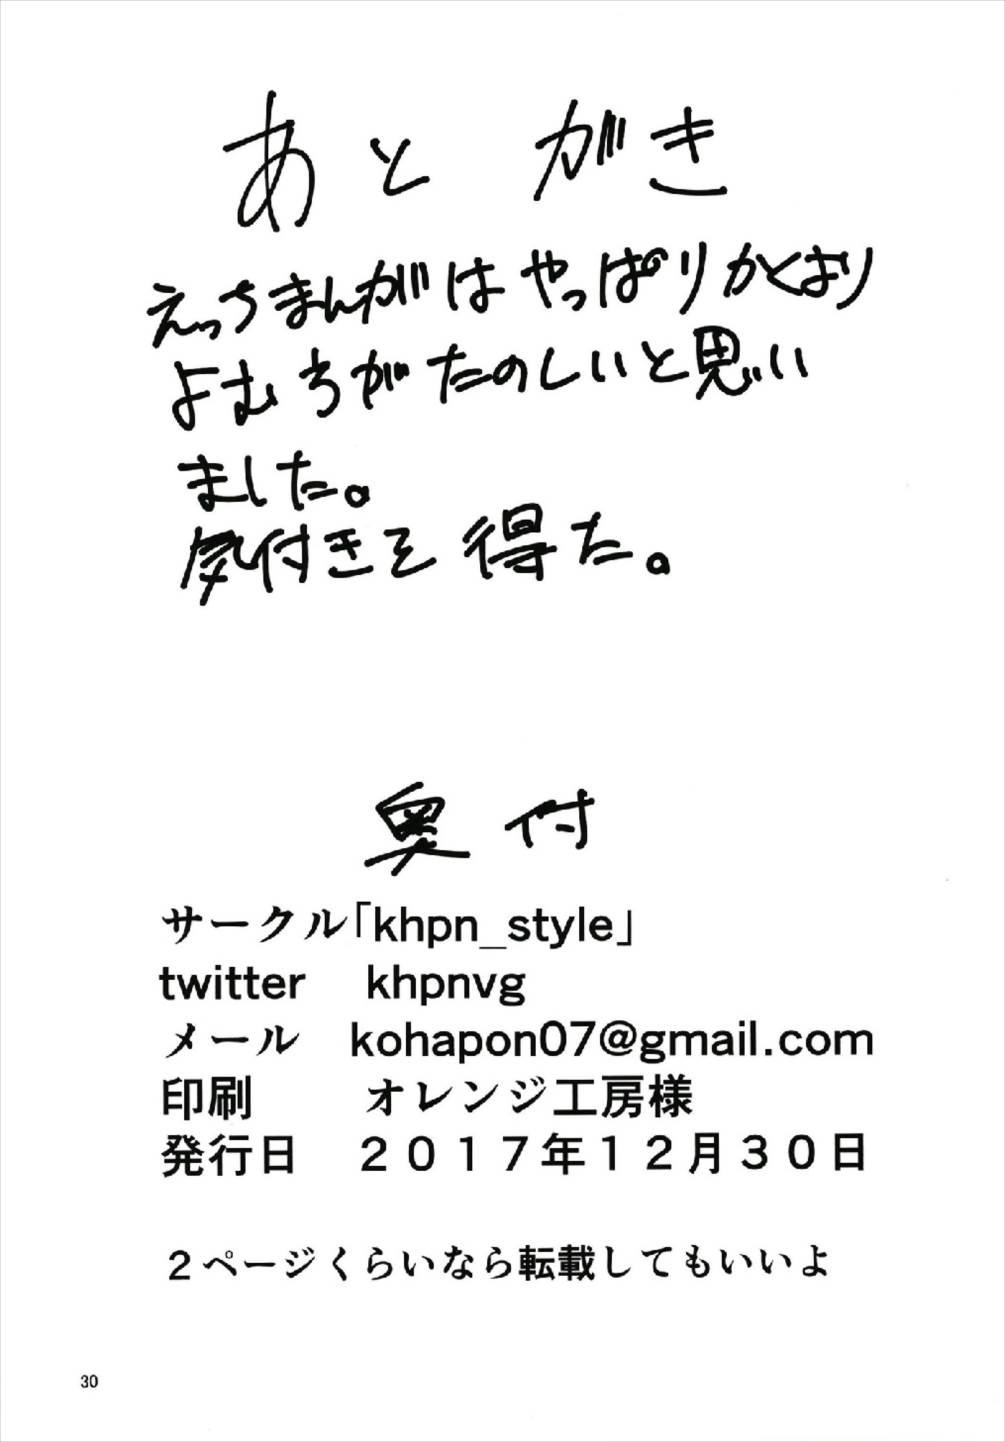 あとがき
えっちまんがはやっぱりかくより
よむ方がたのしいと思い
ました。
気付きを得た。
奥付
サークル「khpn_style」
twitter　khpnvg
メール　kohapon07@gmail.com
印刷　オレンジ工房様
発行日　２０１７年１２月３０日
２ページくらいなら転載してもいいよ
30